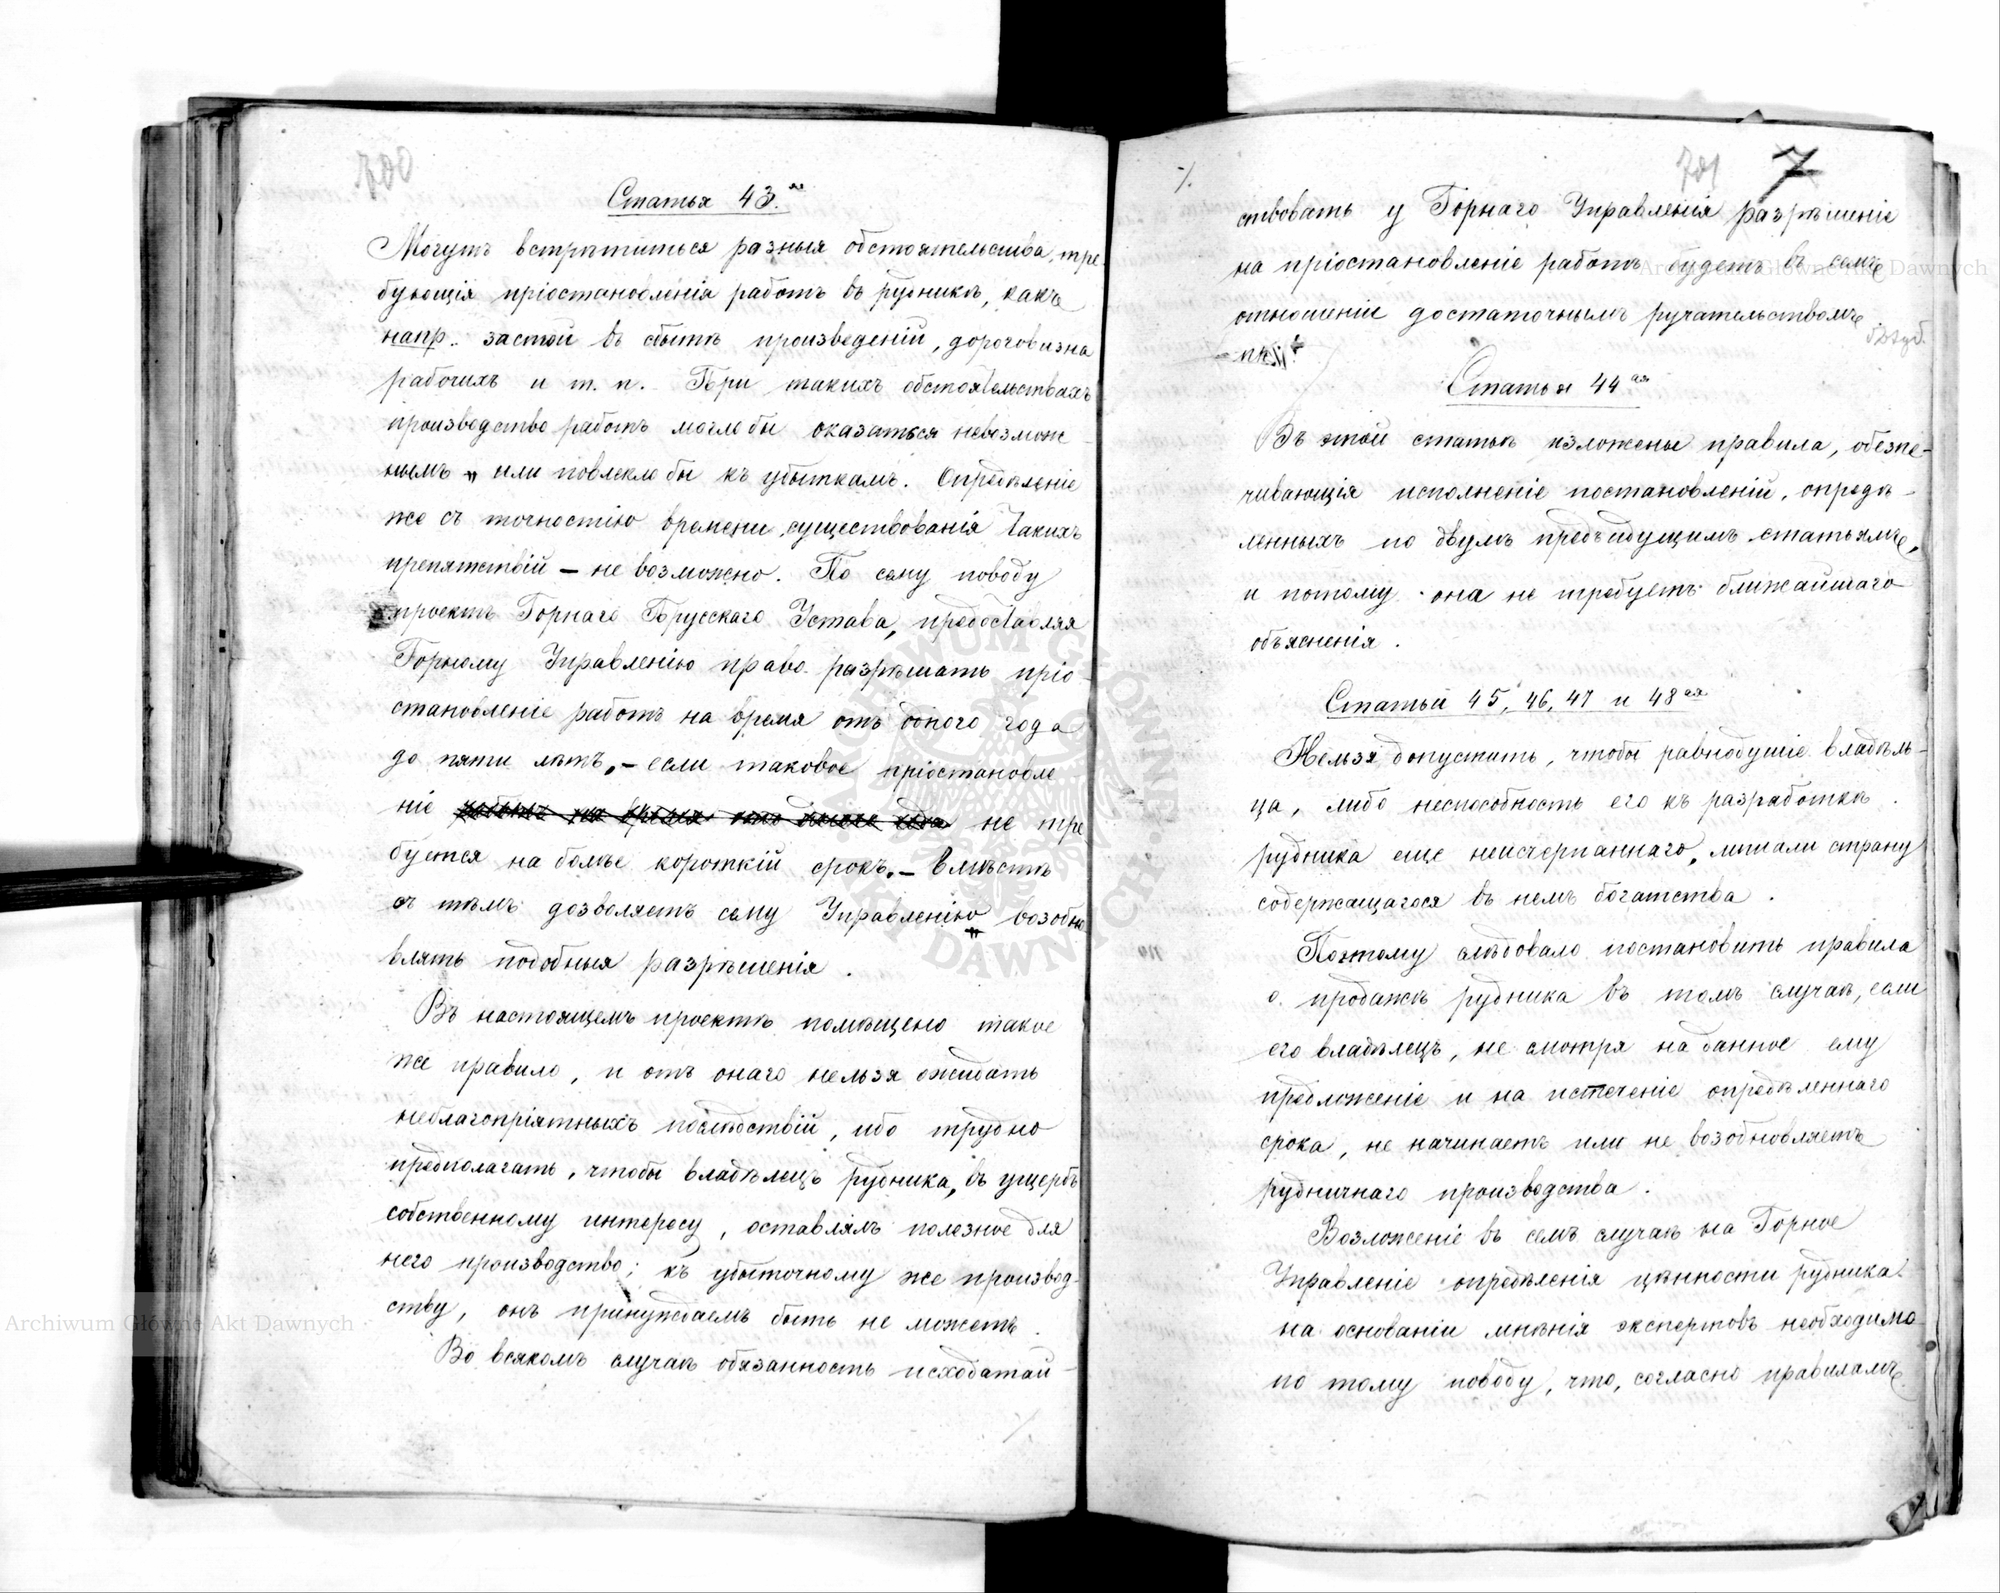 700
Статья 43.ая
Могутъ встрѣтиться разныя обстоятельства, тре
бующія пріостановленія работъ въ рудникѣ, какъ
напр. застой въ сбытѣ произведеній, дороговизна
рабочихъ и т. п. При такихъ обстоятельствахъ
производство работъ моглобы оказаться невозмож-
нымъ или повлеклобы къ убыткамъ. Опредѣленіе
же съ точностію времени существованія такихъ
препятствій – не возможно. По сему поводу
проектъ Горнаго Прусскаго Устава, предоставляя
Горному Управленію право разрѣшать пріо-
становленіе работъ на время отъ одного года
до пяти лѣтъ, – если таковое пріостановле
ніе работъ на время отъ одного года не тре
буется на болѣе короткій срокъ, – вмѣстѣ
съ тѣмъ дозволяетъ сему Управленію возобно
влять подобныя разрѣшенія.
Въ настоящемъ проектѣ помѣщено такое
же правило, и отъ онаго нельзя ожидать
неблагопріятныхъ послѣдствій, ибо трудно
предполагать, чтобы владѣлецъ рудника, въ ущербъ
собственному интересу, оставлялъ полезное для
него производство; къ убыточному же производ-
ству, онъ принуждаемъ быть не можетъ.
Во всякомъ случаѣ обязанность исходатай-
701 7
ствовать у Горнаго Управленія разрѣшеніе
на пріостановленіе работъ будетъ въ семъ
отношеніи достаточнымъ ручательствомъ
Статья 44ая
Въ этой статьѣ изложены правила, обезпе-
чивающія исполненіе постановленій, опредѣ-
ленныхъ по двумъ предъидущимъ статьямъ,
и потому она не требуетъ ближайшаго
объясненія.
Статьи 45, 46, 47 и 48ая
Нельзя допустить, чтобы равнодушіе владѣль-
ца, либо неспособность его къ разработкѣ
рудника еще неисчерпаннаго, лишали страну
содержащагося въ немъ богатства.
Поэтому слѣдовало постановить правила
о продажѣ рудника въ томъ случаѣ, если
его владѣлецъ, не смотря на данное ему
предложеніе и на истеченіе опредѣленнаго
срока, не начинаетъ или не возобновляетъ
рудничнаго производства.
Возложеніе въ семъ случаѣ на Горное
Управленіе опредѣленія цѣнности рудника
на основаніи мнѣнія экспертовъ необходимо
по тому поводу, что, согласно правиламъ
Archiwum Główne Akt Dawnych
Archiwum Główne Akt Dawnych
ARCHIWUM GŁÓWNE AKT DAWNYCH